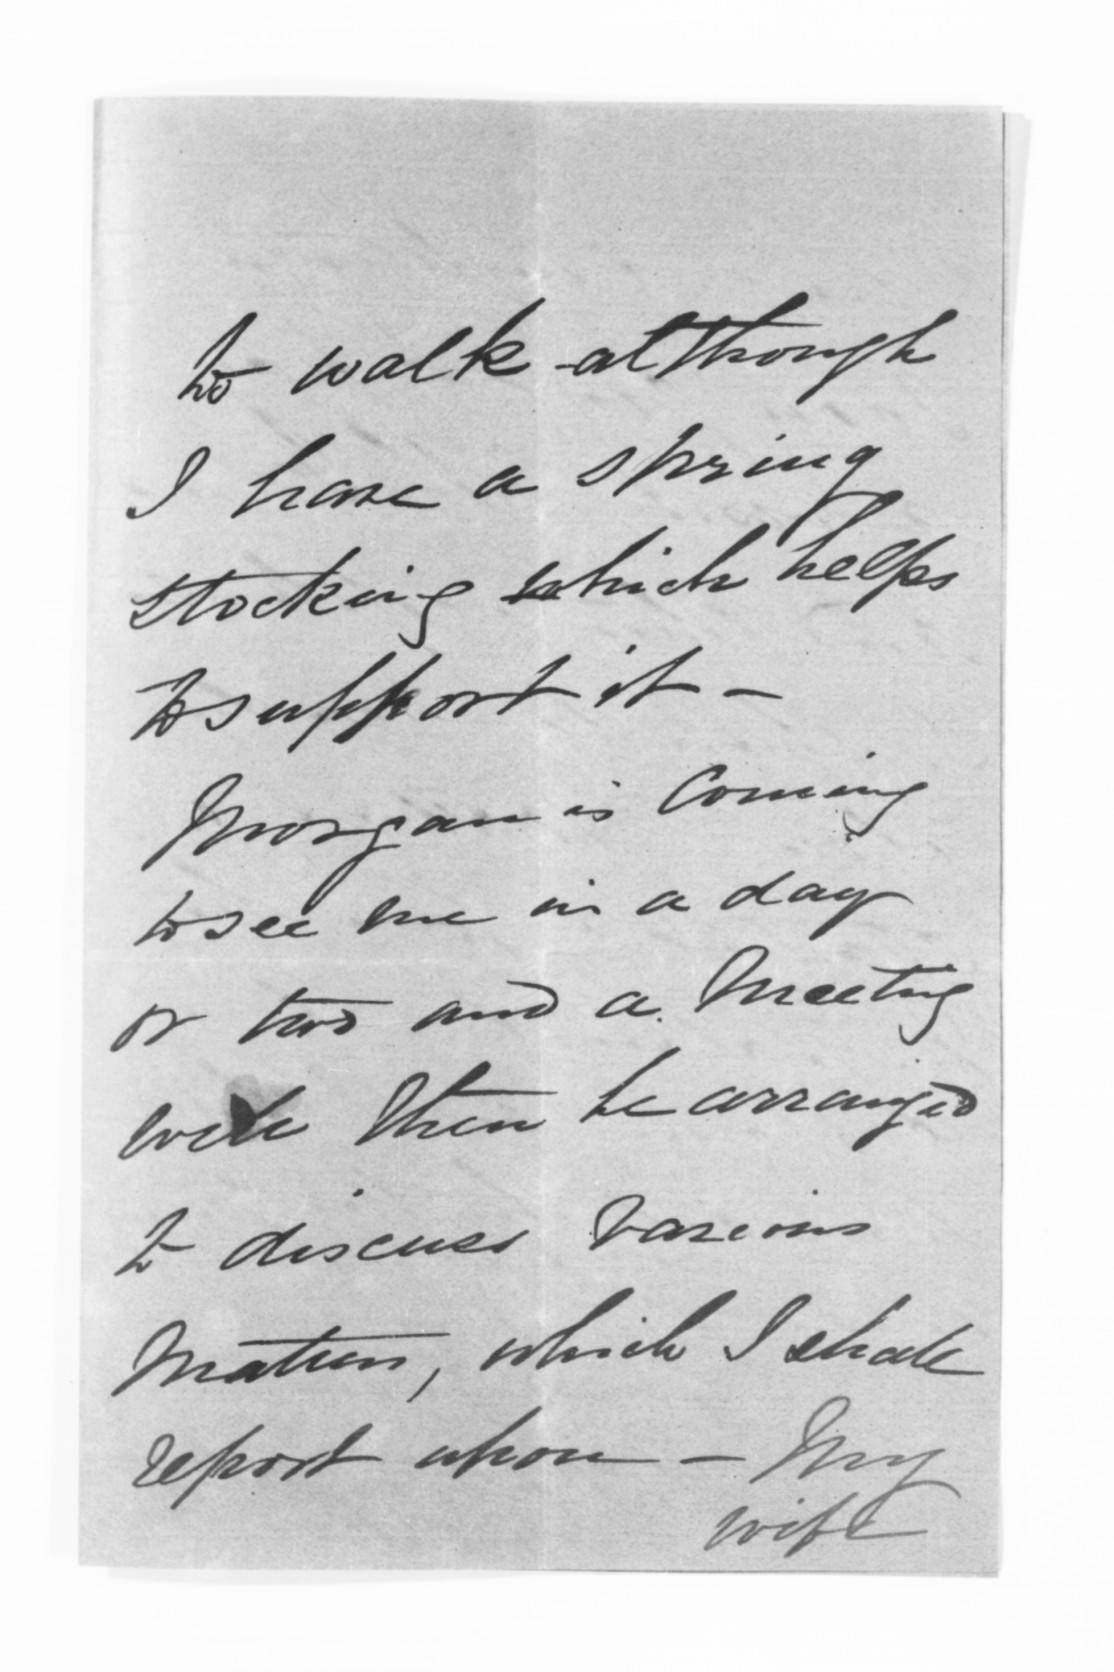 to walk although
I have a spring
stocking which helps
to support it -
Morgan is coming
to see me in a day
or two and a Meeting
will then be arranged
to discuss various
Matters, which I shall
report upon - My
wife